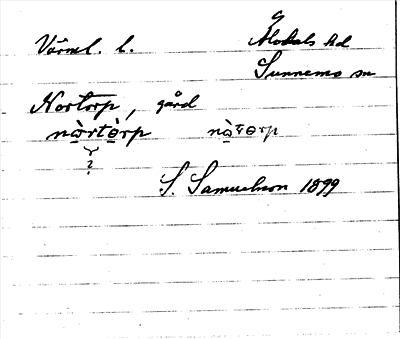 Värml. l. Älvdals hd
Sunnemo sn
Nortorp, gård
nòrtòrp nòrorp
?
S. Samuelsson 1899